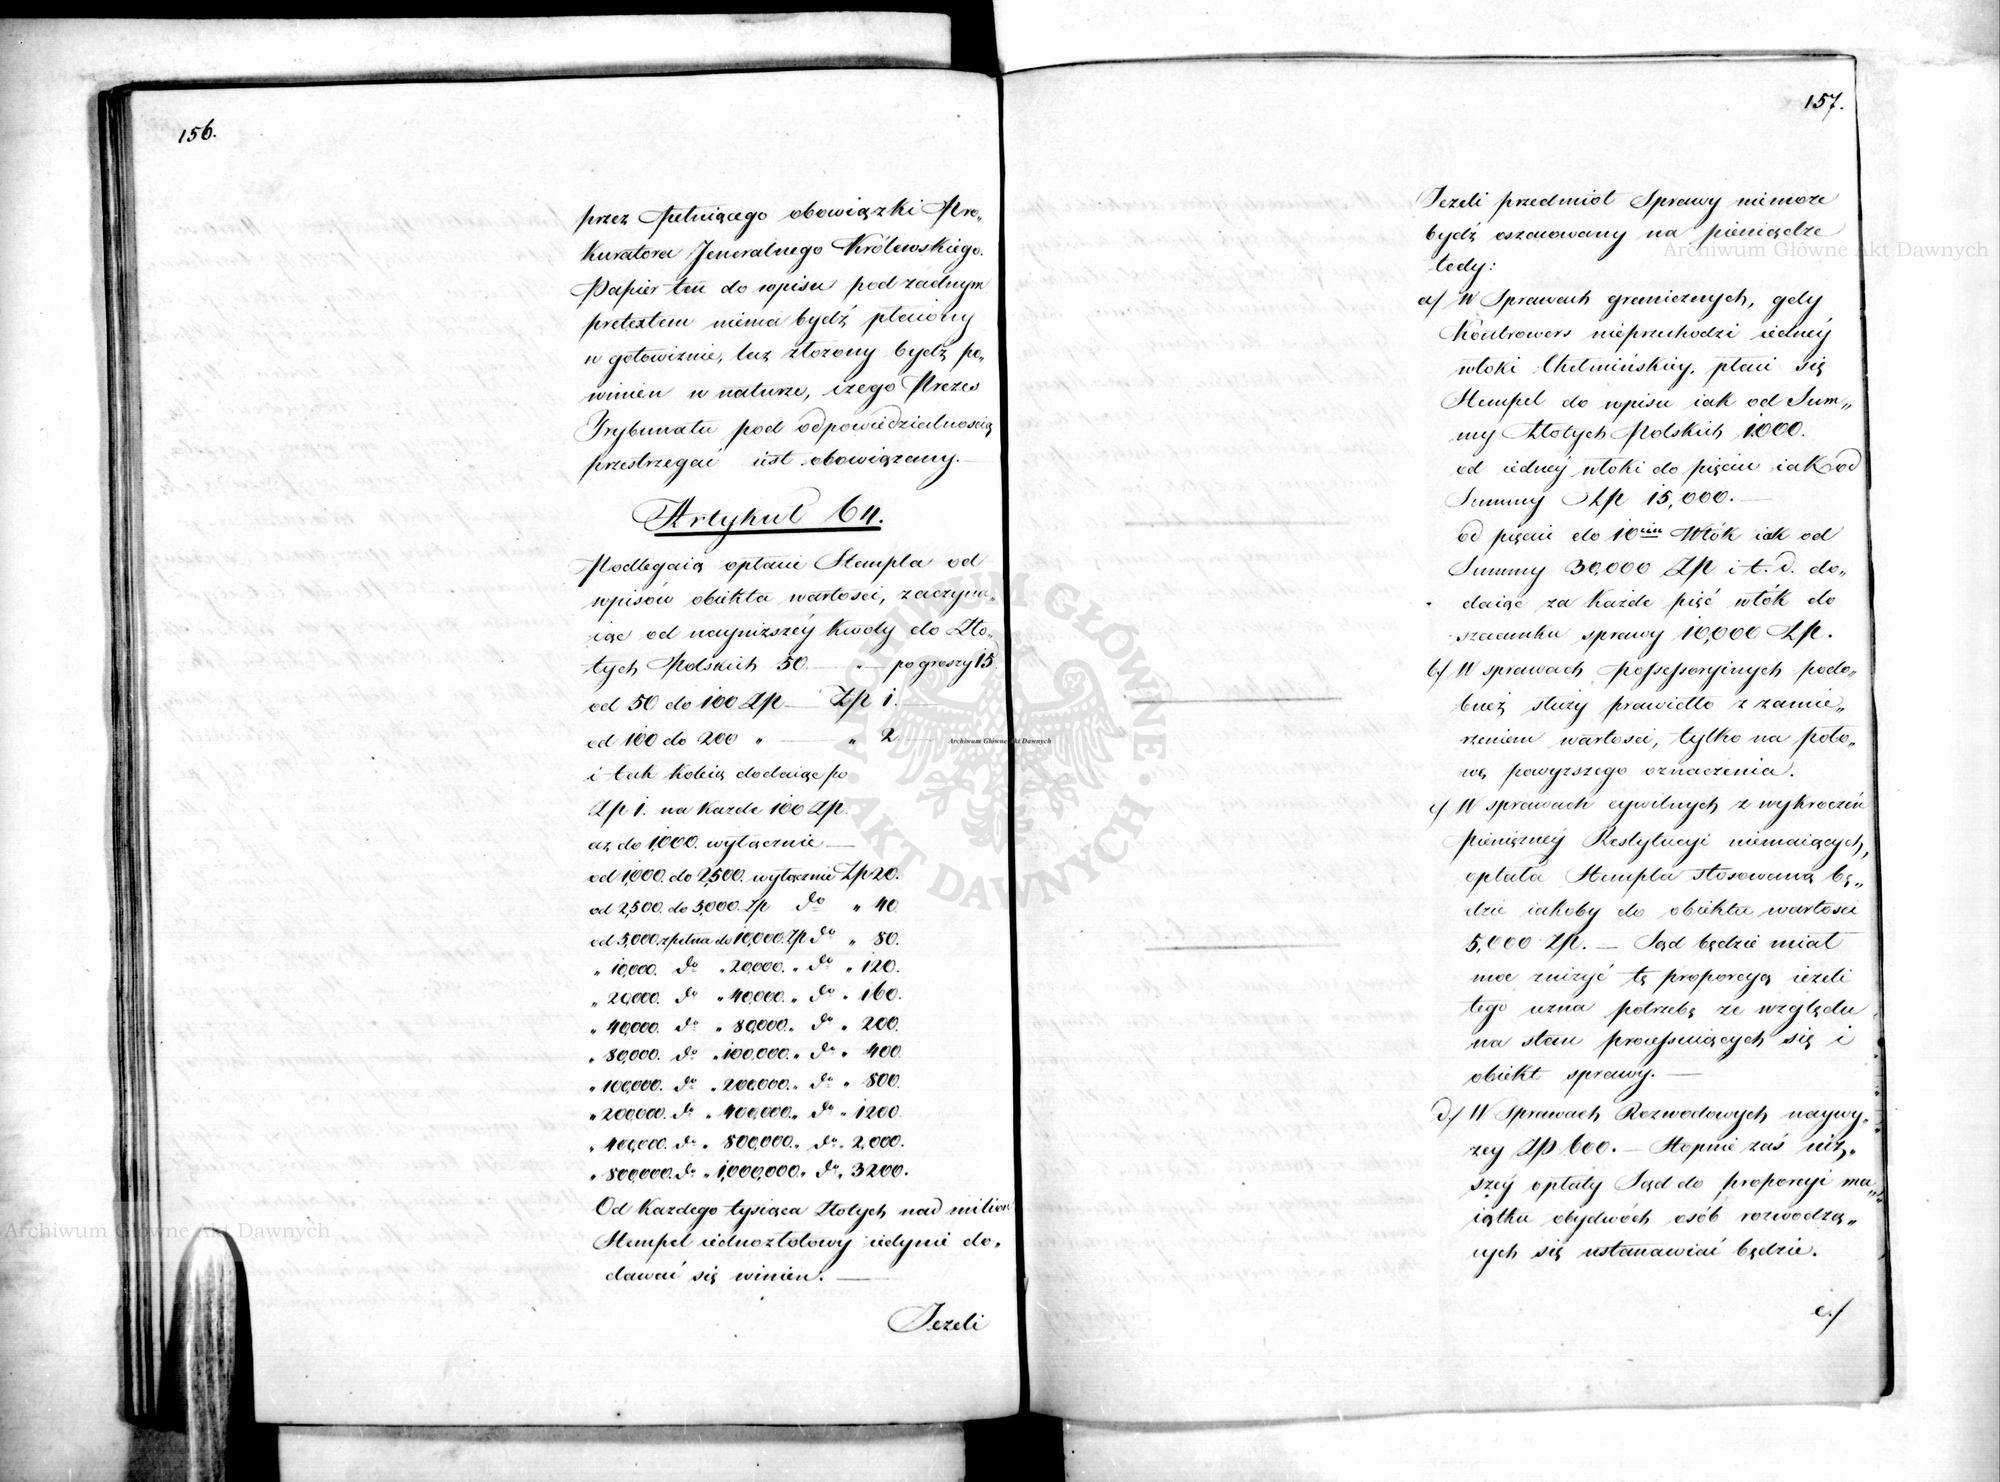 156.
przez pełniącego obowiązki Pro„
kuratora Jeneralnego Królewskiego.
Papier ten do wpisu pod żadnym
pretextem niema bydź płacony
w gotowiznie, lecz złożony bydź po„
winien w naturze, czego Prezes
Trybunału pod odpowiedzialnością
przestrzegać iest obowiązany. —
Artykuł 64.
Podlegaią opłacie Stempla od
wpisów obiekta wartości, zaczyna„
iąc od nayniższéy kwoty do Zło„
tych Polskich 50. — „ — po groszy 15
od 50 do 100 Zł — Zł 1. —
od 100 do 200 „ — „ 2. —
i tak koleią dodaiąc po
Zł 1. na każde 100 Zł.
aż do 1,000. wyłącznie —
od 1,000. do 2,500. wyłącznie Zł 20.
od 2,500. do 5,000. Zł do „ 40.
od 5,000. zupełna do 10,000. Zł do „ 80.
„ 10,000. do „ 20,000. „ do „ 120.
„ 20,000. do „ 40,000. „ do „ 160.
„ 40,000. do „ 80,000. „ do „ 200.
„ 80,000. do „ 100,000. „ do „ 400.
„ 100,000. do „ 200,000. „ do „ 800.
„ 200,000. do „ 400,000. „ do „ 1200.
„ 400,000. do „ 800,000. „ do „ 2,000.
„ 800,000. do „ 1,000,000. „ do „ 3200.
Od każdego tysiąca Złotych nad milion
Stempel iednozłotowy iedynie do„
dawać się winien. —
Jeżeli
157.
Jeżeli przedmiot Sprawy niemoże
bydź oszacowany na pieniądze
tedy:
a/ W Sprawach granicznych, gdy
Kontrowers nieprzechodzi iednéy
włoki Chełmińskiey, płaci się
Stempel do wpisu iak od Sum„
my Złotych Polskich 1000.
od iednéy włoki do pięciu iak od
Summy Zł 15,000. —
od pięciu do 10ciu Włók iak od
Summy 30,000 Zł. i t. d. do„
daiąc za każde pięć włók do
szacunku sprawy 10,000 Zł.
b/ W sprawach possessoryinych podo„
bnież służy prawidło z zamie„
rzeniem wartości, tylko na poło„
wę powyższego oznaczenia.
c/ W sprawach cywilnych z wykroczeń
pieniężnéy Restytucyi niemaiących,
opłata Stempla stosowaną bę„
dzie iakoby do obiektu wartości
5,000 Zł. — Sąd będzie miał
moc zniżyć tę proporcyą ieżeli
tego uzna potrzebę ze względu
na stan processuiących się i
obiekt sprawy. —
d/ W Sprawach Rozwodowych naywy„
żey Zł 600. — Stopnie zaś niż„
széy opłaty Sąd do proporcyi ma„
iątku obydwóch osób rozwodzą„
cych się ustanawiać będzie.
e./
Archiwum Główne Akt Dawnych
Archiwum Główne Akt Dawnych
Archiwum Główne Akt Dawnych
ARCHIWUM GŁÓWNE · AKT DAWNYCH ·